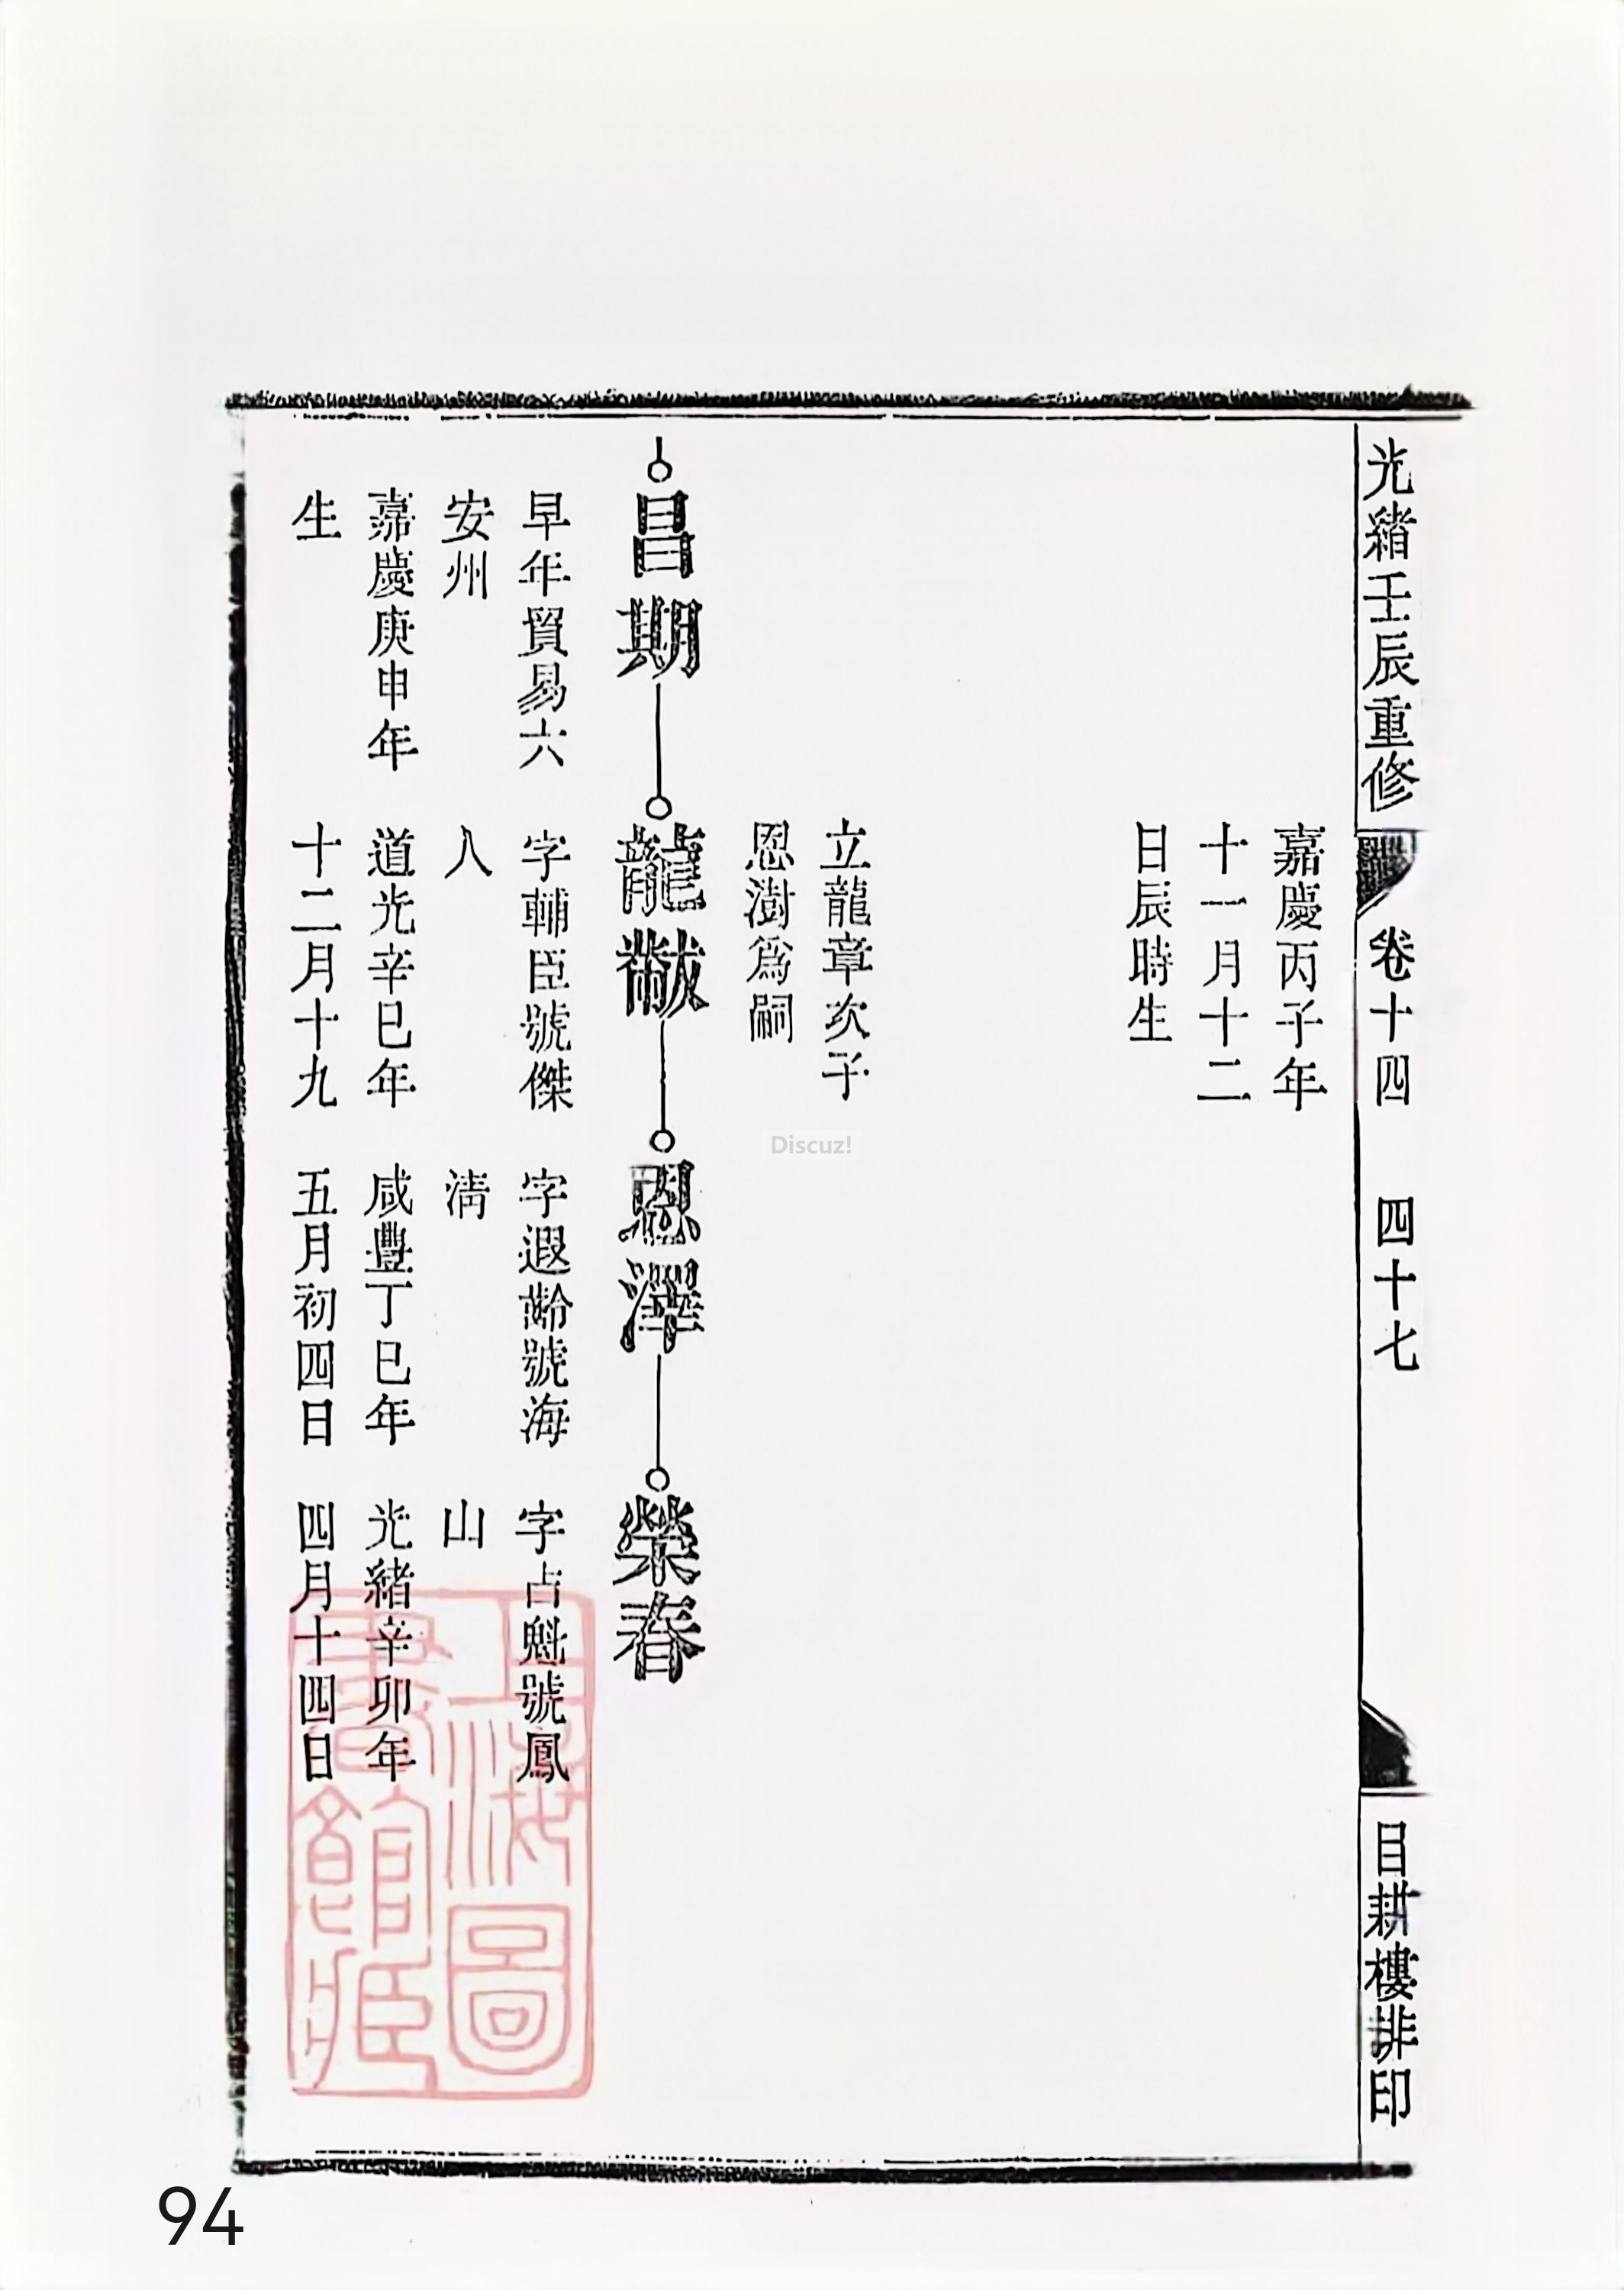 光緒壬辰重修
卷十四
四十七
目耕樓排印
嘉慶丙子年
十一月十二
日辰時生
立龍章次子
恩澍爲嗣
昌期
龍黻
恩澤
榮春
早年貿易六
安州
嘉慶庚申年
生
字輔臣號傑
人
道光辛巳年
十二月十九
字遐齡號海
清
咸豐丁巳年
五月初四日
字占魁號鳳
山
光緒辛卯年
四月十四日
上海圖書館藏
Discuz!
94